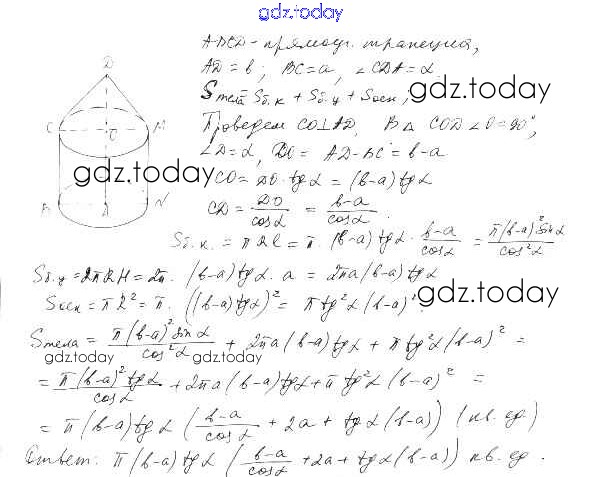 gdz.today
ABCD - прямоуг. трапеция,
AD = b; BC = a, ∠CDA = α
Sтела = Sб.к + Sб.ц + Sосн,
gdz.today
Проведем CO⊥AD, В △ COD ∠O = 90°,
∠D = α, DO = AD - BC = b-a
gdz.today
CO = DO · tgα = (b-a) tgα
CD = DO/cosα = (b-a)/cosα.
Sб.к. = πRl = π · (b-a) tgα · (b-a)/cosα = π(b-a)² sinα/cos²α
Sб.ц = 2πRH = 2π · (b-a) tgα · a = 2πa(b-a) tgα
Sосн = πR² = π · ((b-a) tgα)² = π tg²α (b-a)²
gdz.today
Sтела = π(b-a)² sinα/cos²α + 2πa(b-a) tgα + π tg²α (b-a)² =
gdz.today gdz.today
= π(b-a)² tgα/cosα + 2πa(b-a) tgα + π tg²α (b-a)² =
= π(b-a) tgα ((b-a)/cosα + 2a + tgα (b-a)) (кв. ед.)
Ответ: π(b-a) tgα ((b-a)/cosα + 2a + tgα (b-a)) кв. ед.
D
C O M
B A N